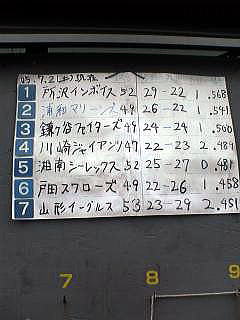 05.7.2(土)現在
1 所沢インボイス 52 29-22 1 .568
2 浦和マリーンズ 49 26-22 1 .541
3 鎌ヶ谷ファイターズ 49 24-24 1 .500
4 川崎ジャイアンツ 47 22-23 2 .489
5 湘南シーレックス 52 25-27 0 .481
6 戸田スワローズ 49 22-26 1 .458
7 山形イーグルス 53 23-29 2 .451
7 8 9